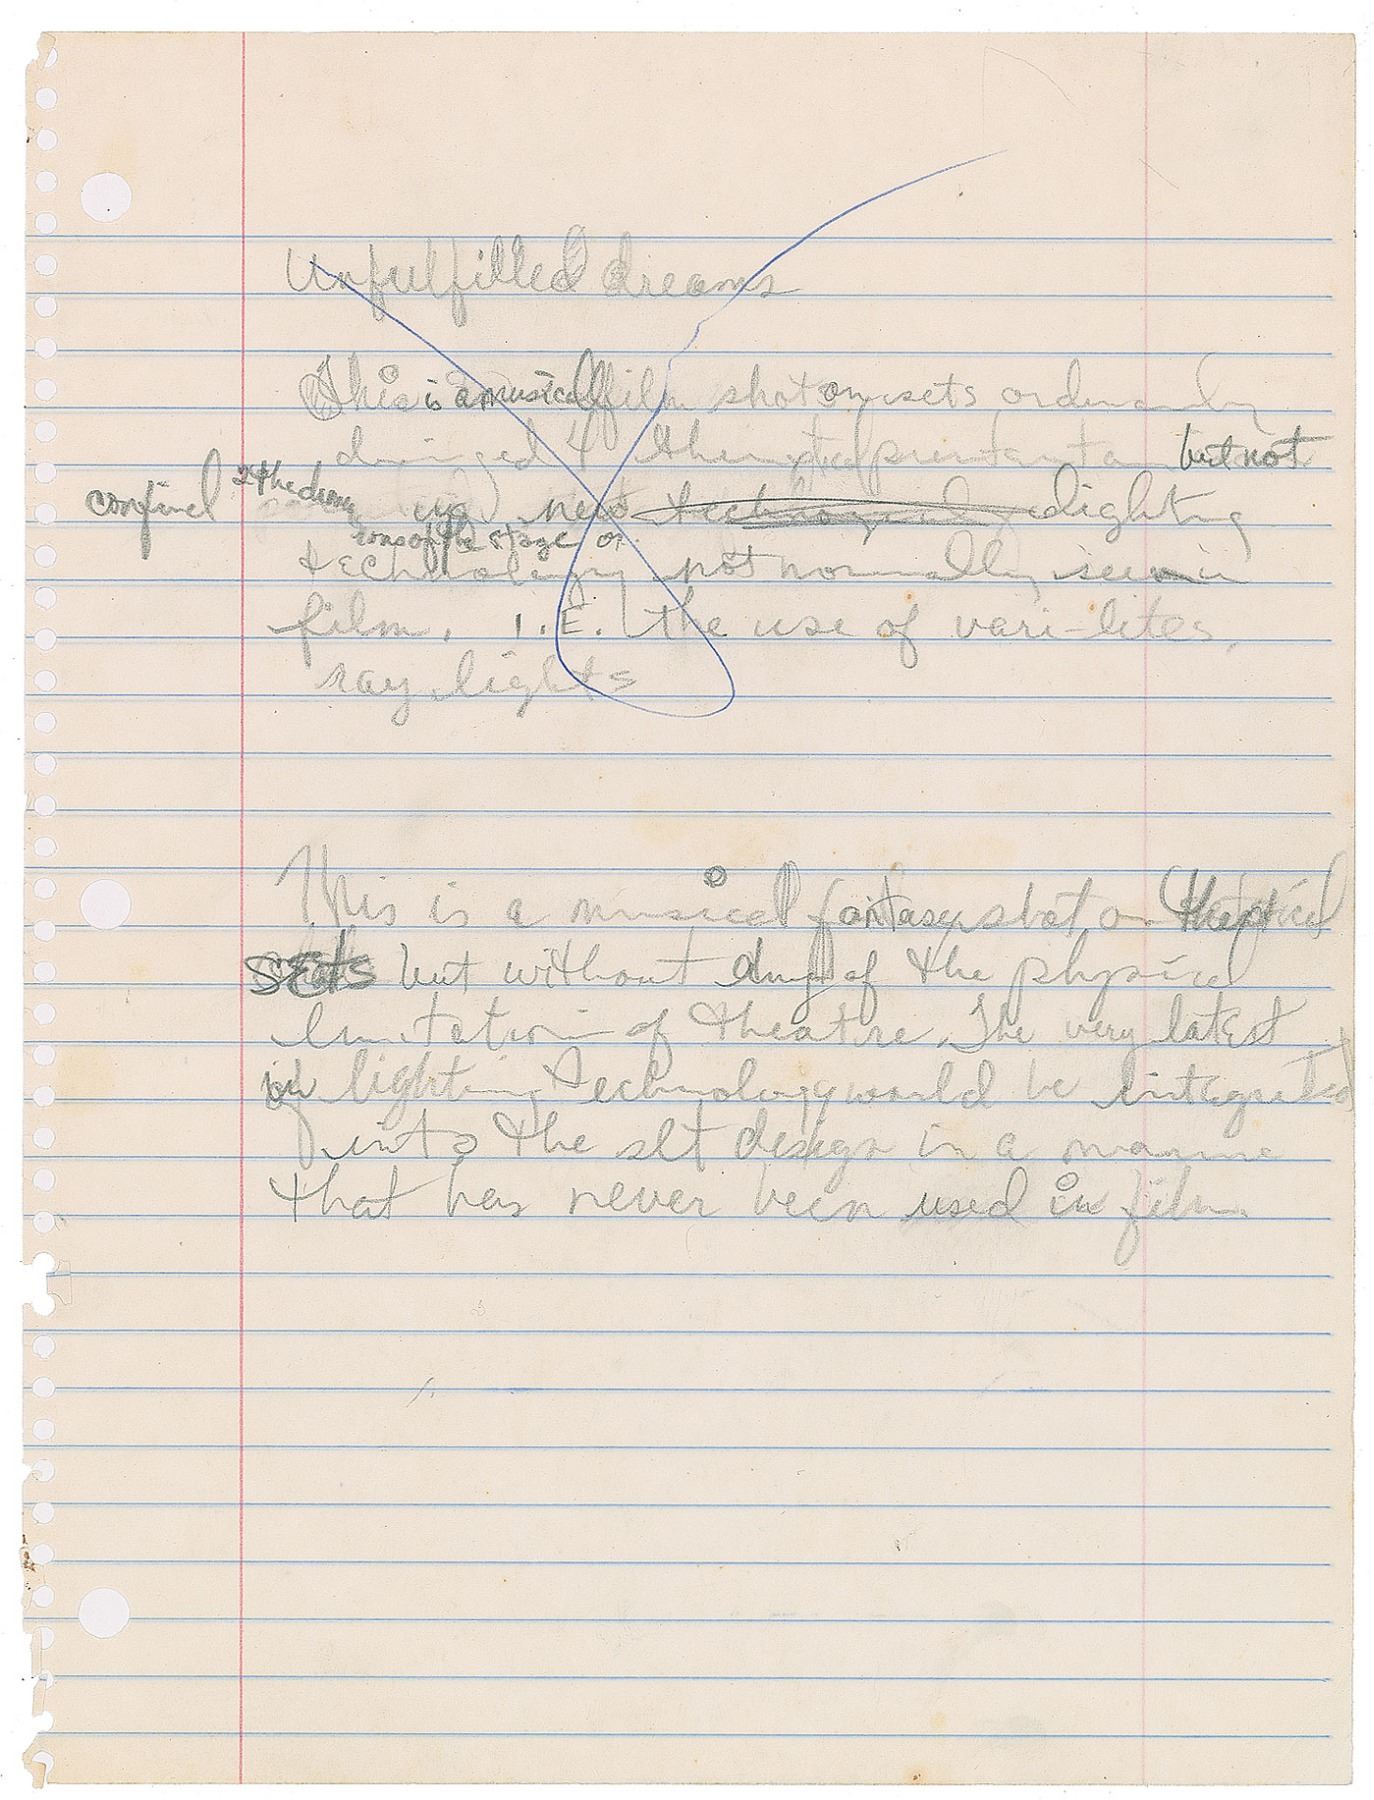 Unfulfilled dreams
This is a musical film shot on sets ordinarily
designed 4 theatrical but not
confined 2 the dimen
sions of the stage or
new technology lighting
technology not normally seen in
film. I.E. the use of vari-lites,
ray lights
This is a musical fantasy shot on theatrical
SEts but without any of the physical
limitation of theatre. The very latest
in lighting technology would be integrated
into the set design in a manne
that has never been used in film.